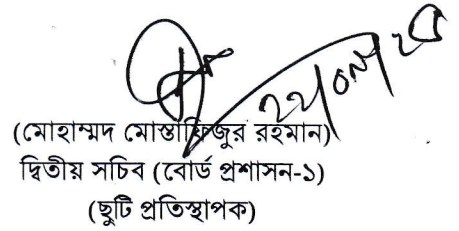 (মোহাম্মদ মোস্তাফিজুর রহমান)
দ্বিতীয় সচিব (বোর্ড প্রশাসন-১)
(ছুটি প্রতিস্থাপক)